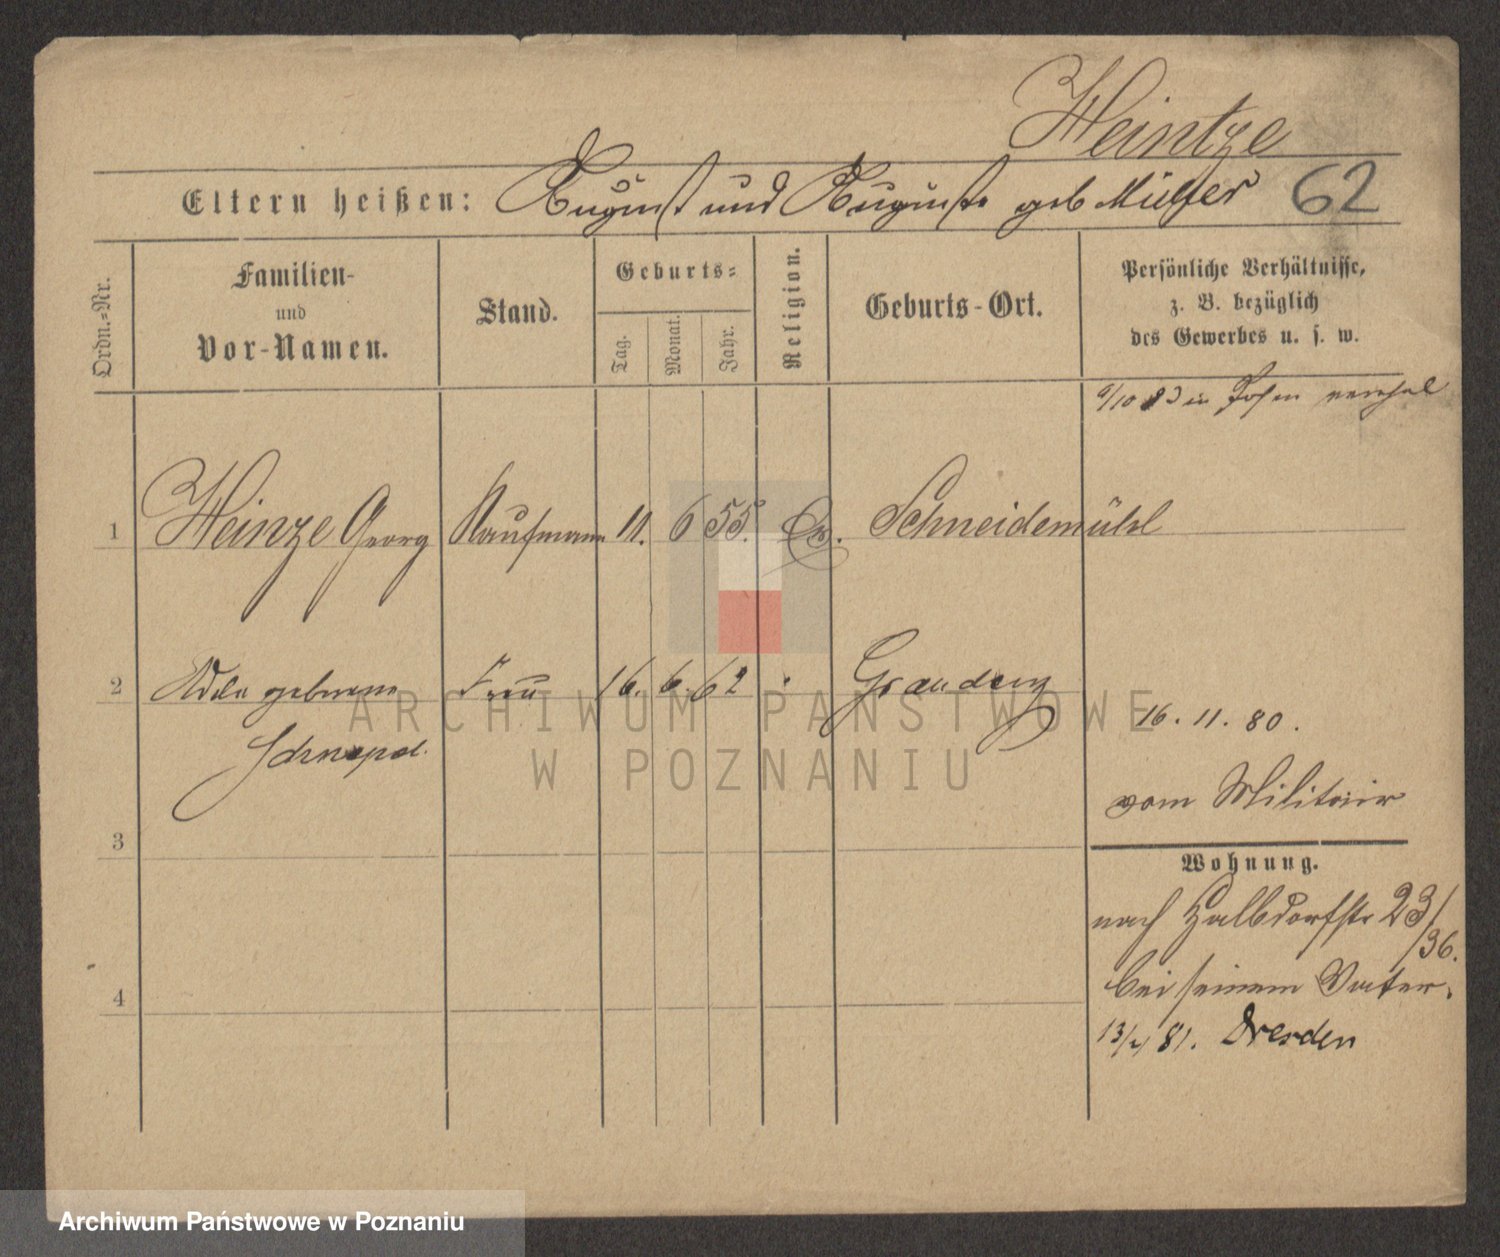 Heintze
Eltern heißen: August und Auguste geb Müller 62
Ordn.-Nr.
Familien-
und
Vor-Namen.
Stand.
Geburts-
Tag.
Monat.
Jahr.
Religion.
Geburts-Ort.
Persönliche Verhältnisse,
z. B. bezüglich
des Gewerbes u. s. w.
9/10 83 in Posen
1 Heinze Georg Kaufmann 11. 6 55. Ev. Schneidemühl
2 Adele geborene Frau 16. 6. 62 Graudenz
16. 11. 80.
vom Militair
3
Wohnung.
nach Halbdorfstr 23/
36.
bei seinem Vater.
4
81. Dresden
ARCHIWUM PAŃSTWOWE
W POZNANIU
Archiwum Państwowe w Poznaniu